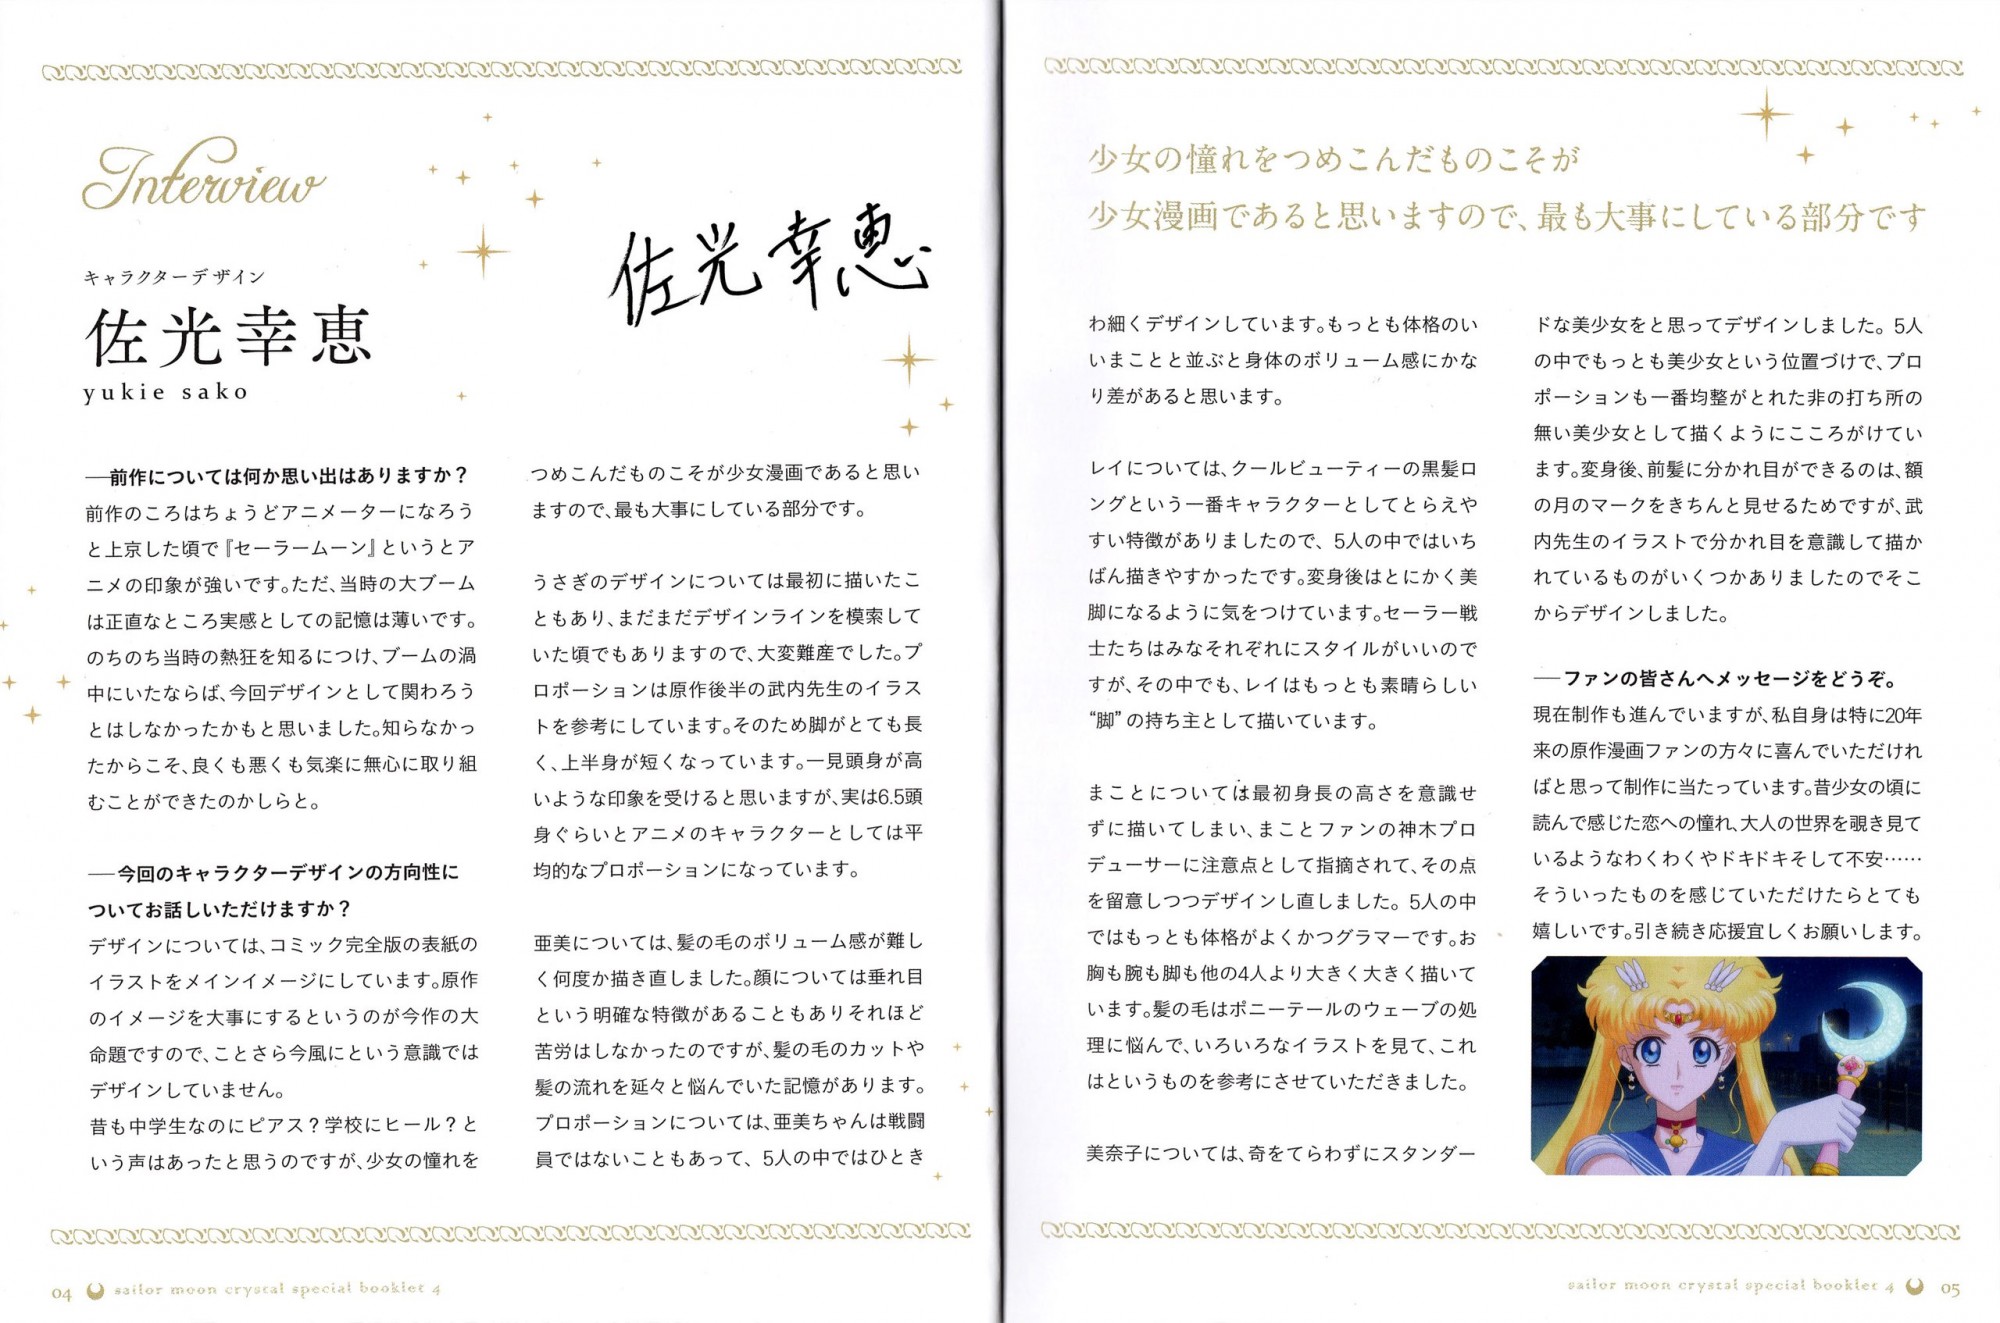 Interview
キャラクターデザイン
佐光幸恵
yukie sako
佐光幸恵
──前作については何か思い出はありますか？
前作のころはちょうどアニメーターになろう
と上京した頃で『セーラームーン』というとア
ニメの印象が強いです。ただ、当時の大ブーム
は正直なところ実感としての記憶は薄いです。
のちのち当時の熱狂を知るにつけ、ブームの渦
中にいたならば、今回デザインとして関わろう
とはしなかったかもと思いました。知らなかっ
たからこそ、良くも悪くも気楽に無心に取り組
むことができたのかしらと。
──今回のキャラクターデザインの方向性に
ついてお話しいただけますか？
デザインについては、コミック完全版の表紙の
イラストをメインイメージにしています。原作
のイメージを大事にするというのが今作の大
命題ですので、ことさら今風にという意識では
デザインしていません。
昔も中学生なのにピアス？学校にヒール？と
いう声はあったと思うのですが、少女の憧れを
つめこんだものこそが少女漫画であると思い
ますので、最も大事にしている部分です。
うさぎのデザインについては最初に描いたこ
ともあり、まだまだデザインラインを模索して
いた頃でもありますので、大変難産でした。プ
ロポーションは原作後半の武内先生のイラス
トを参考にしています。そのため脚がとても長
く、上半身が短くなっています。一見頭身が高
いような印象を受けると思いますが、実は6.5頭
身ぐらいとアニメのキャラクターとしては平
均的なプロポーションになっています。
亜美については、髪の毛のボリューム感が難し
く何度か描き直しました。顔については垂れ目
という明確な特徴があることもありそれほど
苦労はしなかったのですが、髪の毛のカットや
髪の流れを延々と悩んでいた記憶があります。
プロポーションについては、亜美ちゃんは戦闘
員ではないこともあって、5人の中ではひとき
04 sailor moon crystal special booklet 4
少女の憧れをつめこんだものこそが
少女漫画であると思いますので、最も大事にしている部分です
わ細くデザインしています。もっとも体格のい
いまことと並ぶと身体のボリューム感にかな
り差があると思います。
レイについては、クールビューティーの黒髪ロ
ングという一番キャラクターとしてとらえや
すい特徴がありましたので、5人の中ではいち
ばん描きやすかったです。変身後はとにかく美
脚になるように気をつけています。セーラー戦
士たちはみなそれぞれにスタイルがいいので
すが、その中でも、レイはもっとも素晴らしい
“脚”の持ち主として描いています。
まことについては最初身長の高さを意識せ
ずに描いてしまい、まことファンの神木プロ
デューサーに注意点として指摘されて、その点
を留意しつつデザインし直しました。5人の中
ではもっとも体格がよくかつグラマーです。お
胸も腕も脚も他の4人より大きく大きく描いて
います。髪の毛はポニーテールのウェーブの処
理に悩んで、いろいろなイラストを見て、これ
はというものを参考にさせていただきました。
美奈子については、奇をてらわずにスタンダー
ドな美少女をと思ってデザインしました。5人
の中でもっとも美少女という位置づけで、プロ
ポーションも一番均整がとれた非の打ち所の
無い美少女として描くようにこころがけてい
ます。変身後、前髪に分かれ目ができるのは、額
の月のマークをきちんと見せるためですが、武
内先生のイラストで分かれ目を意識して描か
れているものがいくつかありましたのでそこ
からデザインしました。
──ファンの皆さんへメッセージをどうぞ。
現在制作も進んでいますが、私自身は特に20年
来の原作漫画ファンの方々に喜んでいただけれ
ばと思って制作に当たっています。昔少女の頃に
読んで感じた恋への憧れ、大人の世界を覗き見て
いるようなわくわくやドキドキそして不安……
そういったものを感じていただけたらとても
嬉しいです。引き続き応援宜しくお願いします。
sailor moon crystal special booklet 4 05